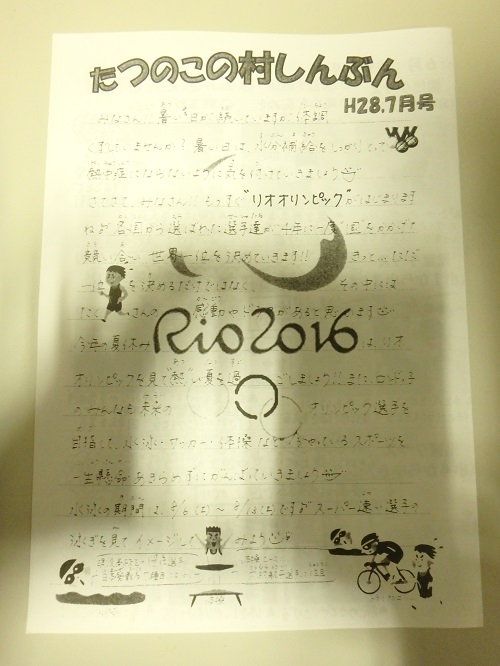 たつのこの村しんぶん
H28.7月号
みなさん!!暑い日が続いていますが体調
くずしていませんか?暑い日は、水分補給をしっかりして
熱中症にならないように気を付けていきましょう
さてさて、みなさん!!もうすぐ"リオオリンピック"がはじまります
ねど各国から選ばれた選手達が4年に一度国をかかげ
競い合い世界一位を決めていきます!!きっと…ただ
一位を決めるだけではなく、その中には
たくさんの感動やドラマがあると思います
Rio2016
今年の夏休みは、リオ
オリンピックを見て"熱い"夏を過ごしましょう!!また
のみんなも未来のオリンピック選手を
目指して、水泳・サッカー・体操などやっているスポーツを
一生懸命あきらめずにがんばっていきましょう
水泳の期間は、8/6(土)~8/13(土)ですスーパー速い選手の
泳ぎを見てイメージしてみよう